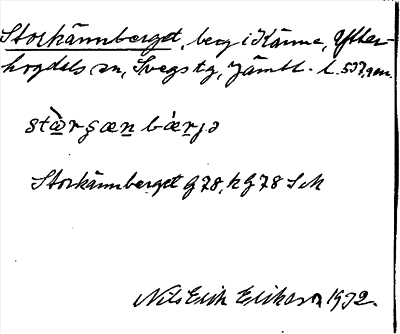 Storkännberget, berg i Känne, Ytter-
hogdals sn, Svegs tg, Jämtl. l. 537,9 m.
stɑ̀rçæn bærjə
Storkännberget G 78, k G 78 SkM
Nils Erik Erikson 1932.